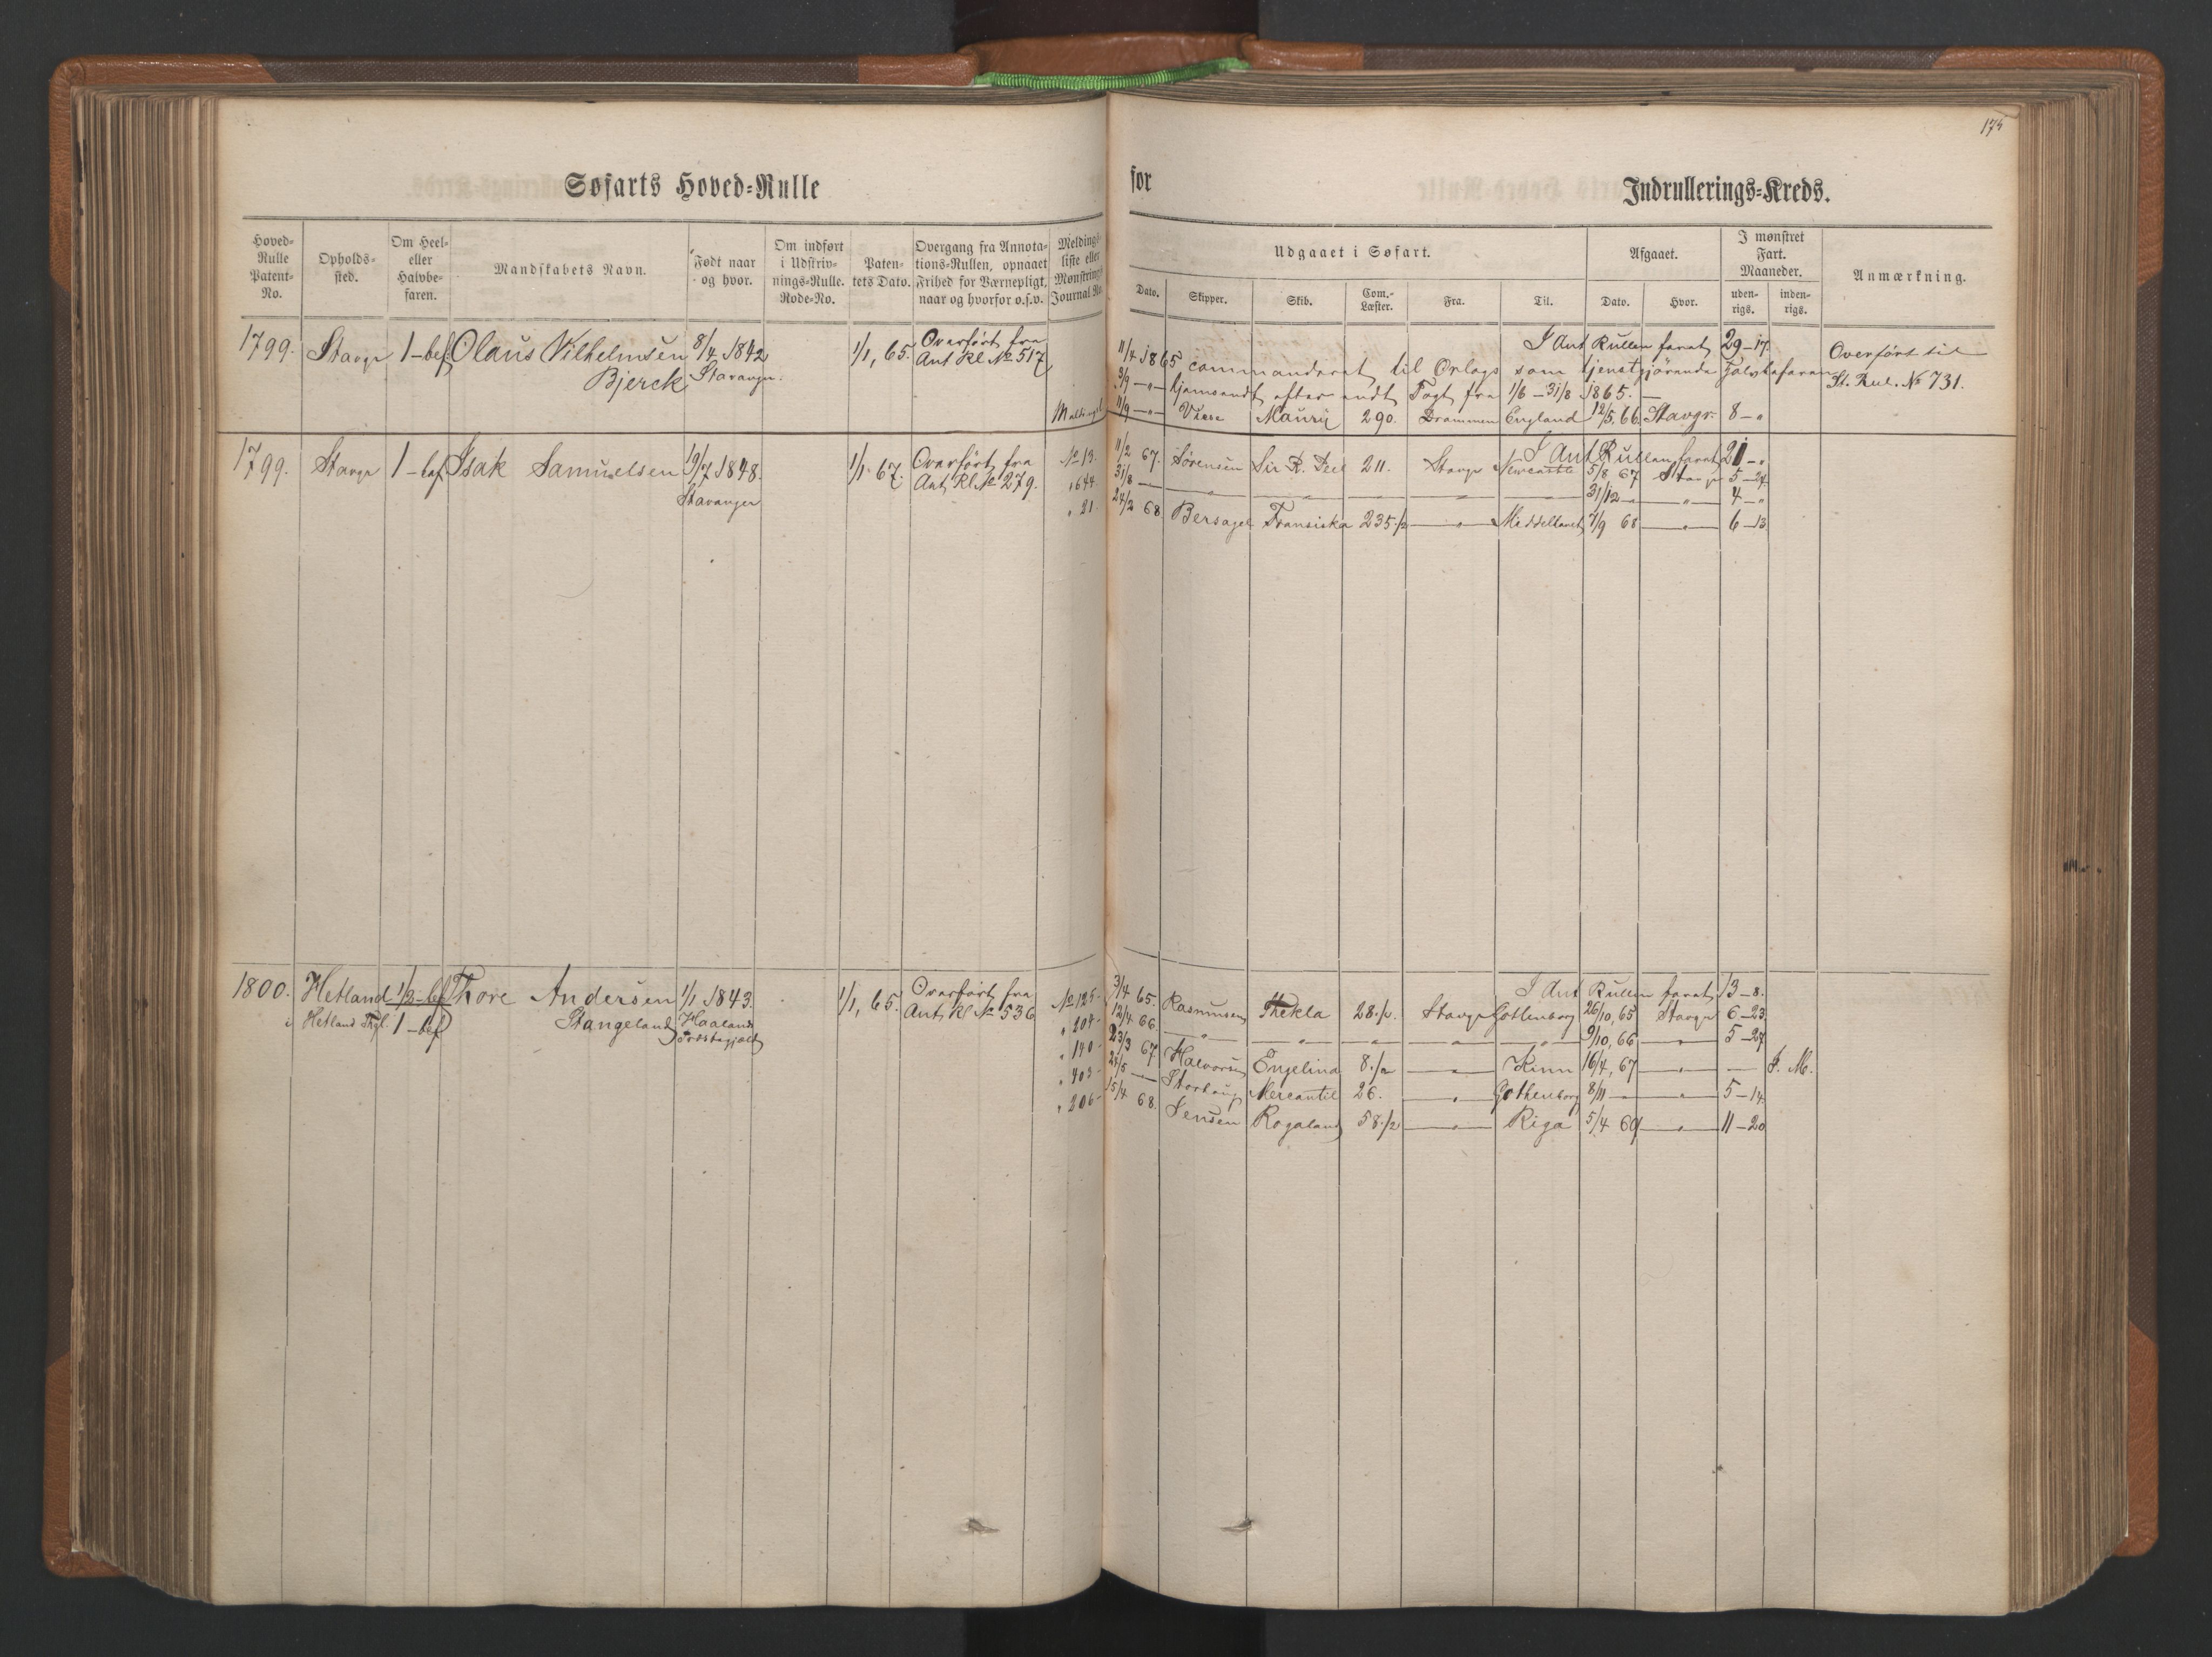 175
Søfarts Hoved-Rulle for Indrullerings-Kreds.
Hoved-Rulle Patent-No. Opholds-sted. Om Heel- eller Halvbe-faren. Mandskabets Navn. Født naar og hvor. Om indført i Udskriv-nings-Rulle. Rode-No. Paten-tets Dato. Overgang fra Annota-tions-Rullen, opnaaet Frihed for Værnepligt, naar og hvorfor o.s.v. Meldings-liste eller Mønstrings Journal No.
Udgaaet i Søfart. Afgaaet. I mønstret Fart. Maaneder. Anmærkning.
Dato. Skipper. Skib. Com.-Læster. Fra. Til. Dato. Hvor. uden-rigs. inden-rigs.
1799. Stavgr 1-bef. Olaus Vilhelmsen 8/4 1842 1/1, 65. Overført fra I Ant Rullen faret 29-17. Overført til
Bjerck Stavanger. Ant Rl. No 517 11/4 1865 commanderet til Orlogs som tjenstgjørende St. Rul. No 731.
3/9 -"- hjemsendt efter endt Togt fra 1/6 - 31/8 1865.
11/9 -"- Maury 290. Drammen England 12/5, 66. Stavgr. 8-"
1799. Stavgr 1-bef. Isak Samuelsen 19/7 1848. 1/1 67. Overført fra No 13. I Ant Rullen faret 21-"
Stavanger Ant Rl No 279. 11/2 67. Sørensen Sir R. Peel 211. Stavgr Newcastle 5/8 67 Stavgr 5-24
" 644 31/8 - " - - - - - 31/12 - " 4-"
" 21. 24/2 68 Bersagel Fransiska 235 1/2 " Middelhavet 7/9 68 " 6-13
1800. Hetland 1/2-bef Thore Andersen 1/1 1843. 1/1, 65. Overført fra No 125. I Ant Rullen faret 13-8.
i Hetland Thgl. 1-bef Stangeland Haaland Præstegjeld Ant Rl No 536 3/4 65. Rasmussen Thekla 28 1/2. Stavgr Gottenborg 26/10, 65 Stavgr 6-23
" 204- 12/4 66. " " " " " 9/10, 66 " 5-27
" 140- 23/3 67 Halvorsen Engelina 8 1/2 " Kinn 16/4, 67 " - F. M.
" 403- 24/5 - Storhaug Mercantil 26. " Gothenborg 8/11 - " 5-14
" 206- 15/4 68. Jensen Rogaland 58 1/2 " Riga 5/4 69 " 11-20